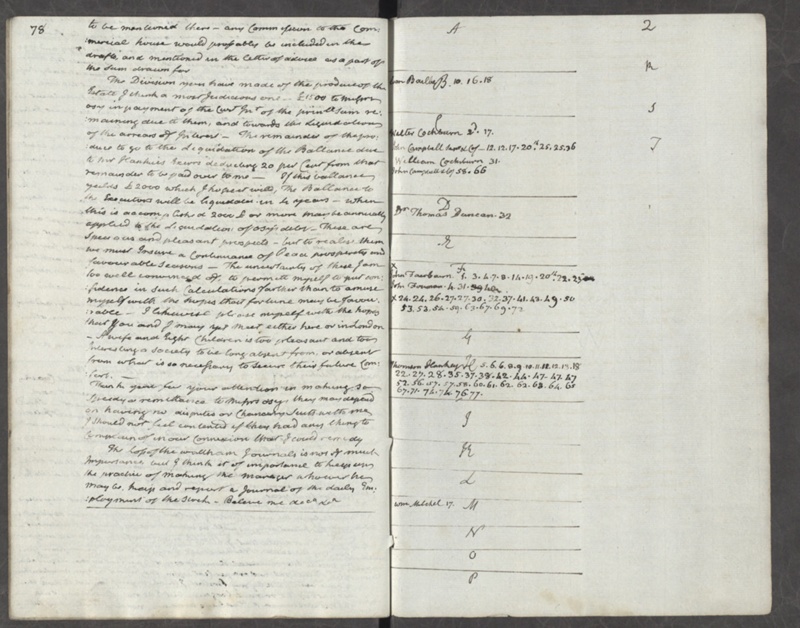 78
to be mentioned there - any Commission to the Com:
mercial house would probably be included in the
drafts and mentioned in the letter of advice as a part of
the Sum drawn for
The Division you have made of the produce of the
Estate I think a most Judicious one - £1500 to Messrs
in payment of the Curt Int of the prinl Sum re:
maining due to them, and towards the Liquidation
of the arrears of Interest - The remainder of the pro:
duce to go to the Liquidation of the Ballance due
to deducting 20 per Cent from that
remainder to be paid over to me - If this ballance
yields £2000 which I hope it will, The Ballance to
the Executors will be liquidated in 4 years - when
this is accomplished 2000 £ or more may be annually
applied to the Liquidation of debt - These are
Specious and pleasant prospects - but to realise them
we must Insure a Continuance of Peace prosperity and
favourable Seasons - The uncertainty of these I am
too well convinced of, to permit myself to put con:
fidence in such Calculations farther than to amuse
myself with the hopes that fortune may be favou:
rable - I likewise please myself with the hopes
that You and I may yet meet, either here or in London
- A wife and Eight Children is too pleasant and too
Interesting a society to be long absent from, or absent
from what is so necessary to secure their future Com:
fort -
Thank you for your attention in making so
Speedy a remittance to Messrs they may depend
on having no disputes or Chancery Suits with me,
I should not feel contented if they had any thing to
complain of in our Connexion that I could remedy
The loss of the Journals is not of much
Importance but I think it of importance to keep up
the practice of making the manager whoever he
may be, keep and report a Journal of the daily Em:
ployment of the Stock - Believe me &c
2
A
R
Baillie 10. 16. 18
S
Walter Cockburn 17.
T
John Campbell 12. 12. 17. 20. 25. 25. 36
William Cockburn 31.
John Campbell 58. 66
D
Thomas Duncan. 32
E
F
John Fairbairn 1. 3. 4. 7. 8. 14. 19. 20. 22. 23
John 4. 31.
X 24. 24. 26. 27. 27. 30. 32. 37. 41. 43. 49. 50
53. 53. 54. 59. 63. 67. 69. 73
G
H
5. 6. 6. 8. 9. 10. 11. 12. 12. 17. 18
22. 27. 28. 35. 37. 39. 42. 44. 47. 47. 47
53. 56. 57. 57. 58. 60. 61. 62. 63. 63. 64. 65
67. 71. 74. 74. 76. 77.
J
K
L
Wm Mitchel 17. M
N
O
P